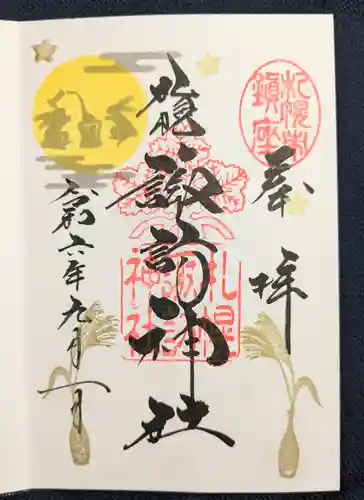 奉拝
札幌市
鎮座
諏訪神社
札幌
諏訪
神社
令和六年九月一日